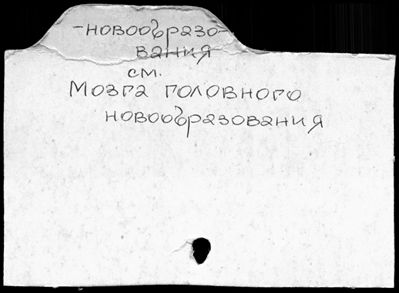 -новообразо-
вания
см.
Мозга головного
новообразования